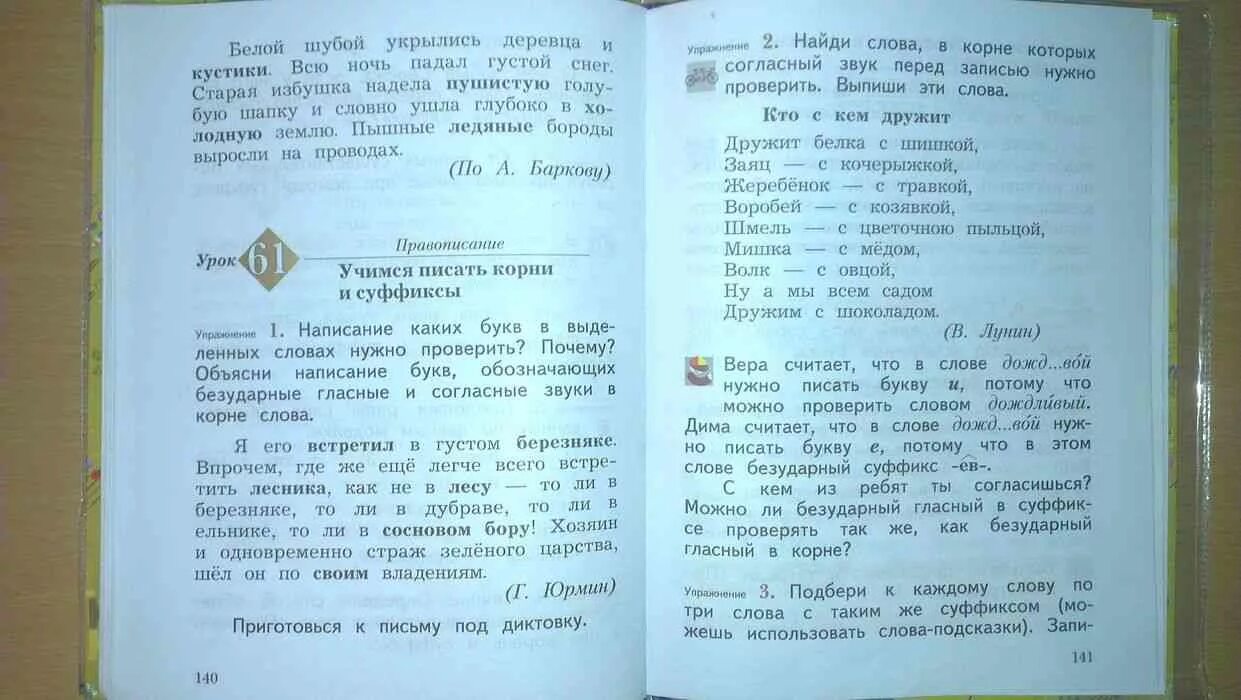 Белой шубой укрылись деревца и
кустики. Всю ночь падал густой снег.
Старая избушка надела пушистую голу-
бую шапку и словно ушла глубоко в хо-
лодную землю. Пышные ледяные бороды
выросли на проводах.
(По А. Баркову)
Урок 61
Правописание
Учимся писать корни
и суффиксы
Упражнение 1. Написание каких букв в выде-
ленных словах нужно проверить? Почему?
Объясни написание букв, обозначающих
безударные гласные и согласные звуки в
корне слова.
Я его встретил в густом березняке.
Впрочем, где же ещё легче всего встре-
тить лесника, как не в лесу — то ли в
березняке, то ли в дубраве, то ли в
ельнике, то ли в сосновом бору! Хозяин
и одновременно страж зелёного царства,
шёл он по своим владениям.
(Г. Юрмин)
Приготовься к письму под диктовку.
140
Упражнение 2. Найди слова, в корне которых
согласный звук перед записью нужно
проверить. Выпиши эти слова.
Кто с кем дружит
Дружит белка с шишкой,
Заяц — с кочерыжкой,
Жеребёнок — с травкой,
Воробей — с козявкой,
Шмель — с цветочною пыльцой,
Мишка — с мёдом,
Волк — с овцой,
Ну а мы всем садом
Дружим с шоколадом.
(В. Лунин)
Вера считает, что в слове дожд...во́й
нужно писать букву и, потому что
можно проверить словом дождли́вый.
Дима считает, что в слове дожд...во́й нуж-
но писать букву е, потому что в этом
слове безударный суффикс -ев-.
С кем из ребят ты согласишься?
Можно ли безударный гласный в суффик-
се проверять так же, как безударный
гласный в корне?
Упражнение 3. Подбери к каждому слову по
три слова с таким же суффиксом (мо-
жешь использовать слова-подсказки). Запи-
141